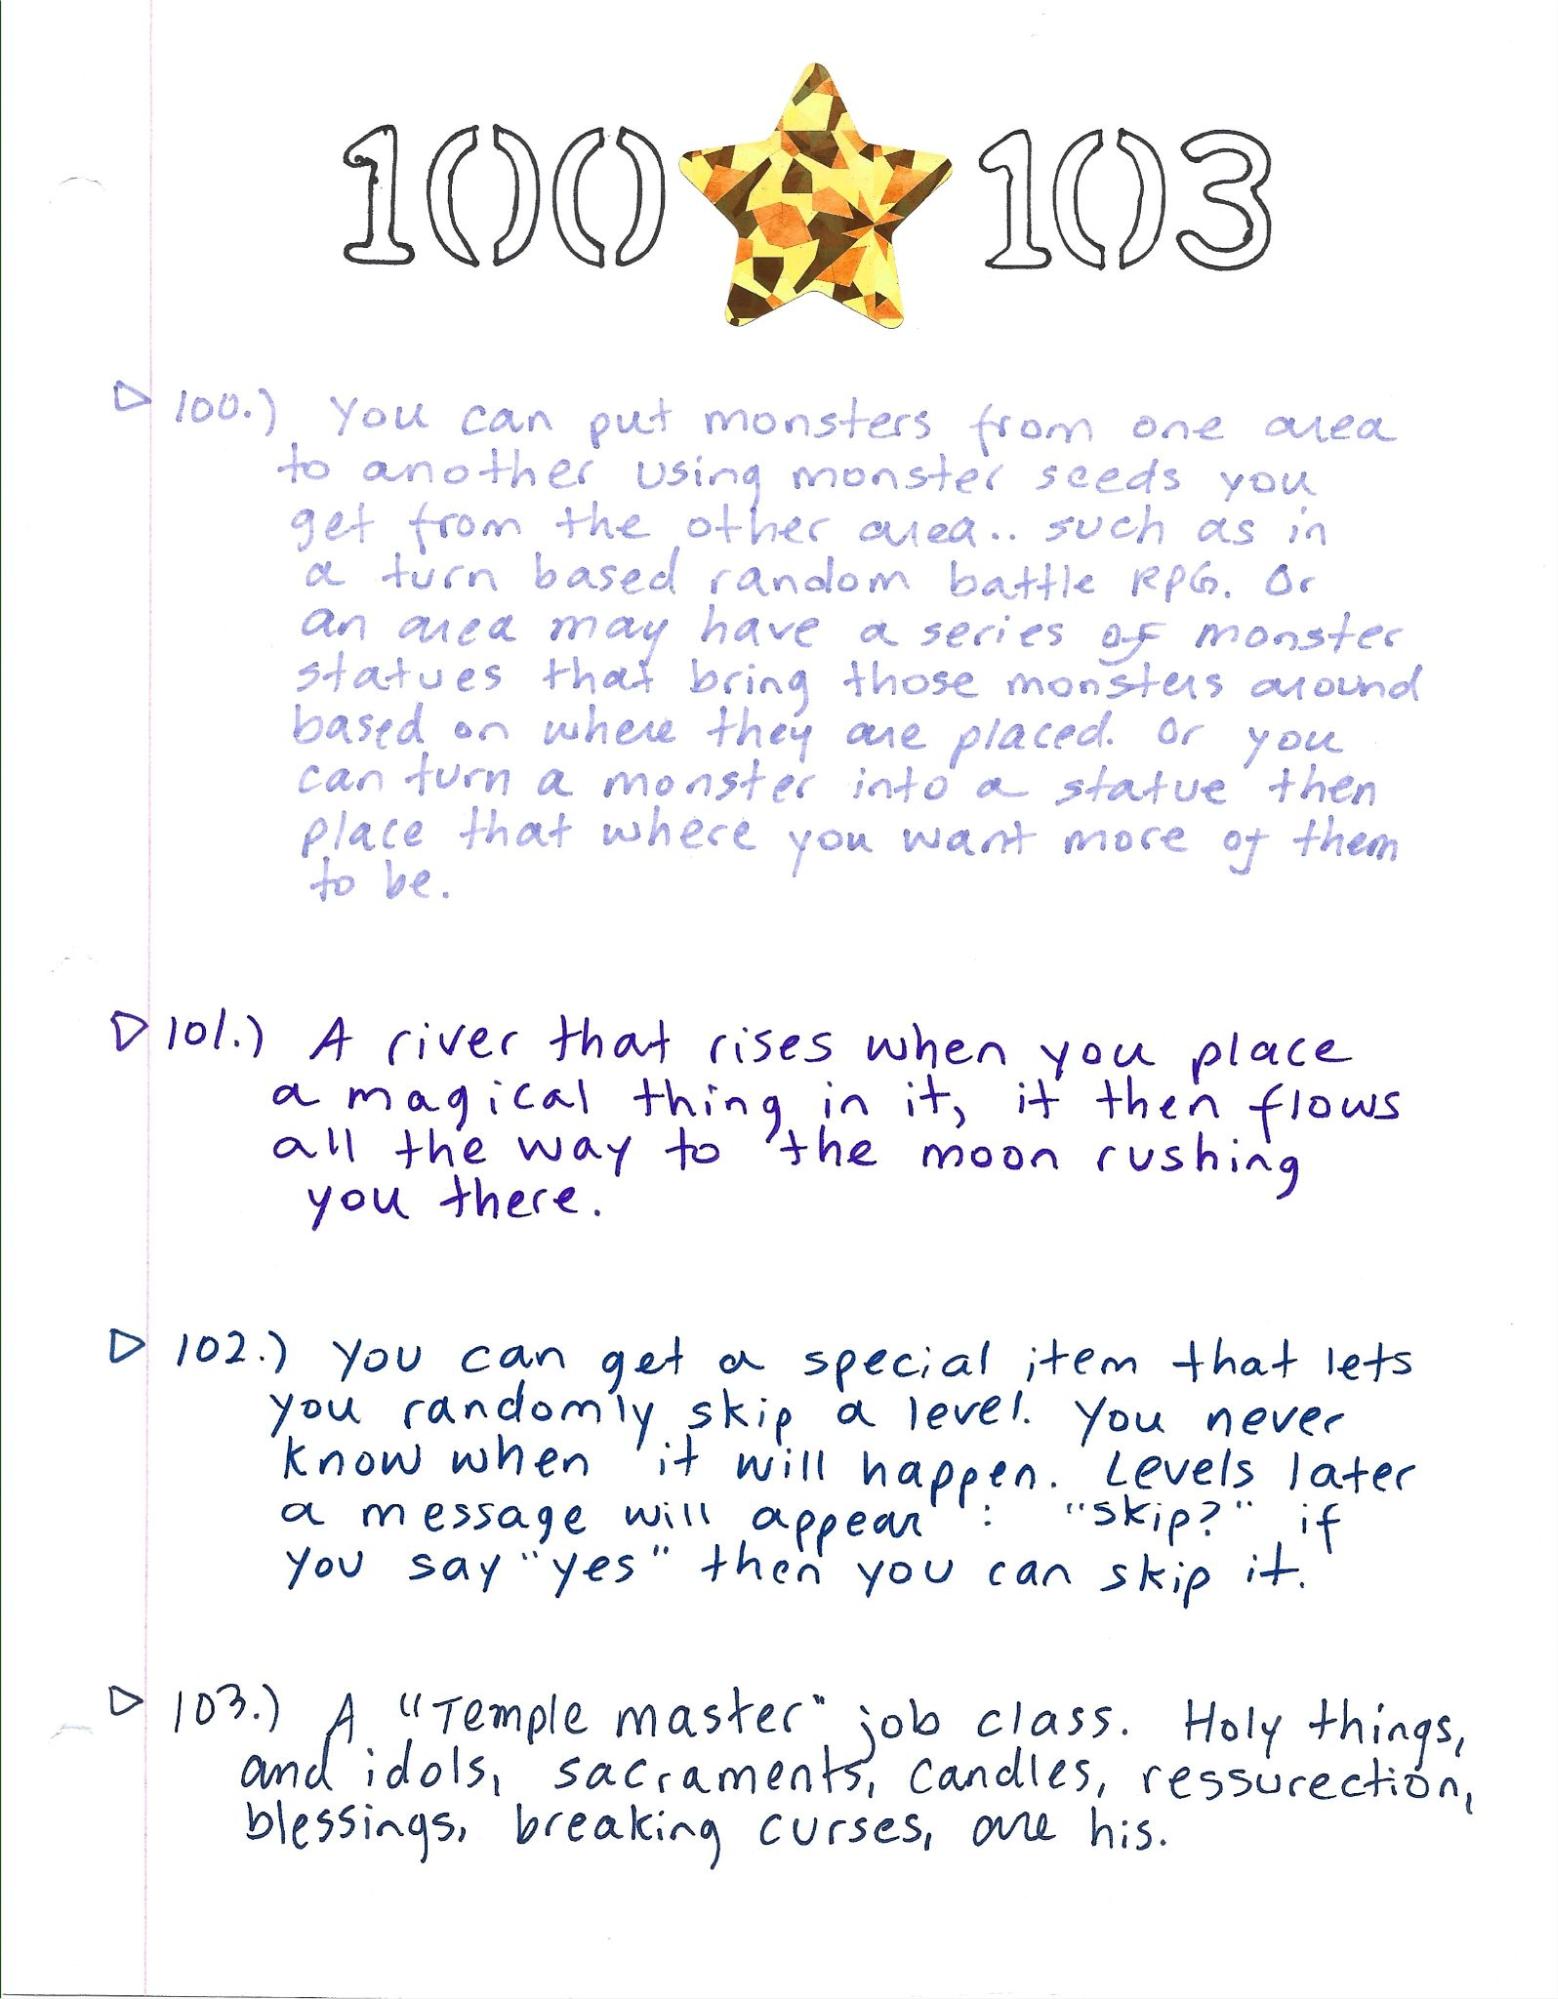 100 103
100.) You can put monsters from one area
to another using monster seeds you
get from the other area.. such as in
a turn based random battle RPG. Or
an area may have a series of monster
statues that bring those monsters around
based on where they are placed. Or you
can turn a monster into a statue then
place that where you want more of them
to be.
101.) A river that rises when you place
a magical thing in it, it then flows
all the way to the moon rushing
you there.
102.) You can get a special item that lets
you randomly skip a level. You never
know when it will happen. Levels later
a message will appear : "skip?" if
you say "yes" then you can skip it.
103.) A "Temple master" job class. Holy things,
and idols, sacraments, candles, ressurection,
blessings, breaking curses, are his.